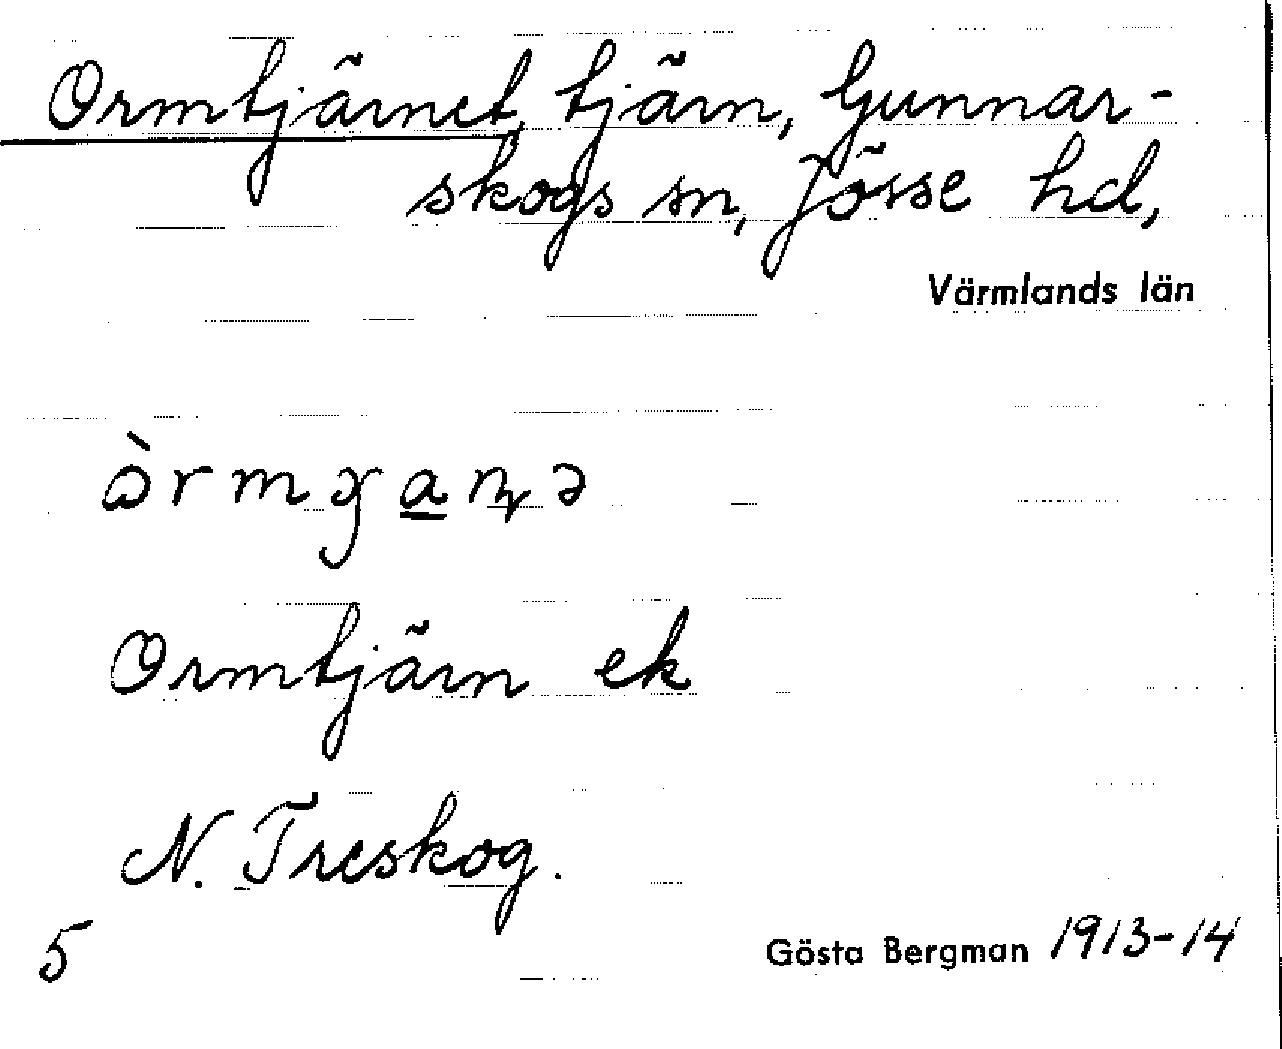 Ormtjärnet, tjärn, Gunnar-
skogs sn, Jösse hd,
Värmlands län
Ormtjärn ek
N. Treskog.
5
Gösta Bergman 1913-14